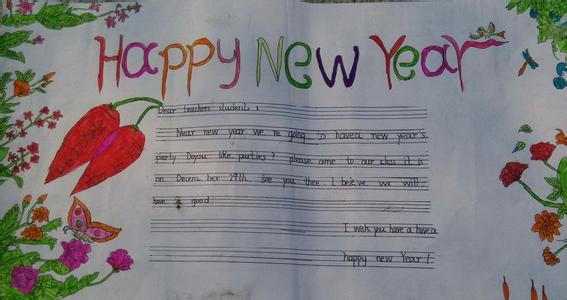 Happy New Year
Dear teachers students :
Near new year we re going to havea new year's
party Doyou like parties ? please come to our class it is
on Decem ber 29th. see you thee. I brieve we will
have a good
I wish you have a havea
happy new Year !